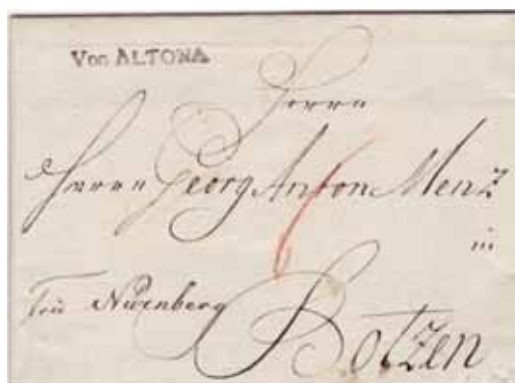 Von ALTONA
Herrn
Herrn Georg Anton Menz
in
Nürenberg
Botzen